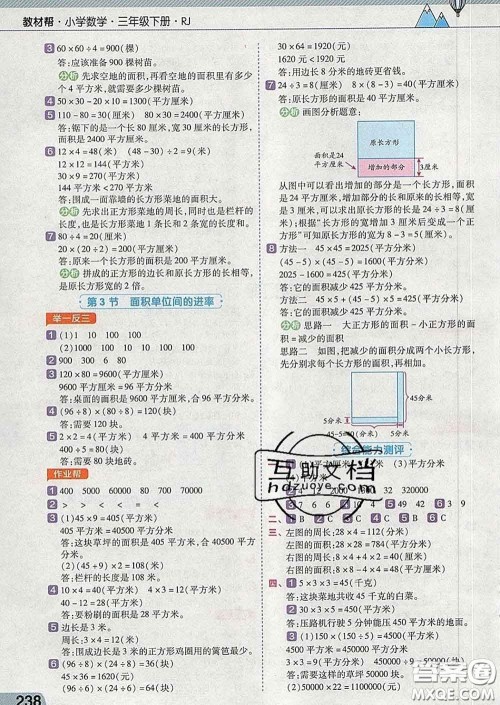 教材帮·小学数学·三年级下册·RJ
3 60×60÷4=900(棵)
答:应该准备 900 棵树苗。
分析 先求空地的面积,再看空地的面积里有多少个 4 平方米,就需要多少棵树苗。
4 50×30-20×10=1300(平方厘米)
5 110-80=30(厘米) 80×30=2400(平方厘米)
答:锯下的是一个长 80 厘米,宽 30 厘米的长方形,面积是 2400 平方厘米。
6 12×4=48(米) (48-30)÷2=9(米)
12×12=144(平方米)
30×9=270(平方米)
144 平方米<270 平方米
答:围成一面靠墙的长方形菜地的面积大。
分析 先求出正方形菜地的周长,同时也是栏杆的长度,也是长方形菜地 1 条长和 2 条宽的长度和。
7 80÷4=20(厘米)
20×(20÷2)=200(平方厘米)
答:原长方形的面积是 200 平方厘米。
分析 拼成的正方形的边长和原长方形的长相等,是原长方形宽的 2 倍。
第 3 节 面积单位间的进率
举一反三
1 (1)1 10 100 100
(2)1000 10 10 100 100
2 900 630 6 80
3 120×80=9600(平方厘米)
9600 平方厘米=96 平方分米
答:桌面的面积是 9600 平方厘米,合 96 平方分米。
4 (96÷8)×(80÷8)=120(块)
答:需要 120 块。
5 2×2=4(平方分米)
答:需要 80 块地砖。
作业帮
1 400 5000 60000 80000 70 700
2 > > < < = <
3 (1)45×9=405(平方米)
405 平方米=40500 平方分米
答:这块草坪的面积是 405 平方米,合 40500 平方分米。
(2)(45+9)×2=108(米)
答:栏杆的长度是 108 米。
4 10×4=40(平方米) 4×3=12(平方米)
40-12=28(平方米)
答:要粉刷的面积是 28 平方米。
5 边长是 3 米。
周长:3×4=12(米)
答:围成边长是 3 米的正方形鸡圈用的篱笆最少。
6 (96÷8)×(24÷8)=36(块)
45×36=1620(元)
(96÷6)×(24÷6)=64(块)
238
30×64=1920(元)
1620 元<1920 元
答:用边长 8 分米的地砖更省钱。
7 24÷3=8(厘米) 8×(8-3)=40(平方厘米)
答:原长方形的面积是 40 平方厘米。
分析 画图分析题意:
原长方形
面积是24平方厘米
增加的部分
3厘米
从图中可以看出增加的部分是一个长方形,面积是 24 平方厘米,增加部分的长和原来的长相等,宽是 3 厘米,所以原长方形的长是 24÷3=8(厘米);根据“长不变,宽增加 3 厘米后变成正方形”可知原长方形的宽为 8-3=5(厘米)。
8 方法一 45×45=2025(平方分米)
(45-5)×(45-5)=1600(平方分米)
2025-1600=425(平方分米)
答:它的面积减少 425 平方分米。
方法二 45×5+(45-5)×5=425(平方分米)
答:它的面积减少 425 平方分米。
分析 思路一 大正方形的面积-小正方形的面积=减少的面积
思路二 如图,把减少的面积分成两个长方形,先分别求出这两个长方形的面积,再相加。
5分米
45-5=40(分米)
5分米
45分米
综合能力测评
互助文档
hdzuoye.com
二、B C B C C
三、左图的周长:28×4=112(分米)
左图的面积:28×28=784(平方分米)
右图的周长:8×4+4×2=40(厘米)
右图的面积:8×4+4×4=48(平方厘米)
四、1 5×3×3=45(千克)
答:这块菜地大约共收 45 千克的白菜。
答:压路机行驶 5 分钟能压 450 平方米的地面。
(2)50000×22=1100000(元)
答案圈
MXQE.COM